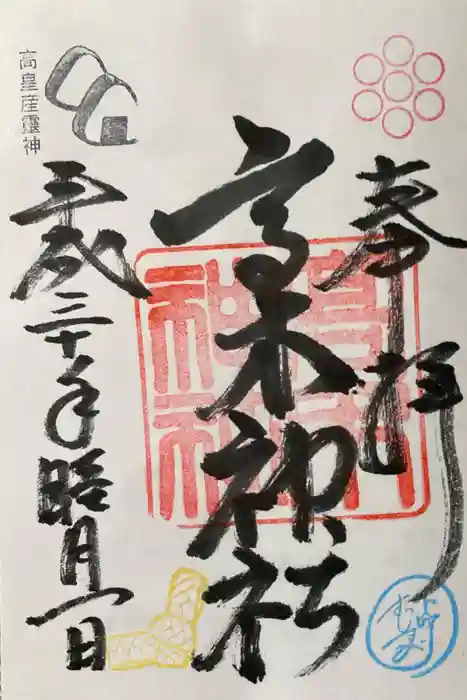 奉拝
高木神社
高木神社
高皇産靈神
平成三十年睦月一日